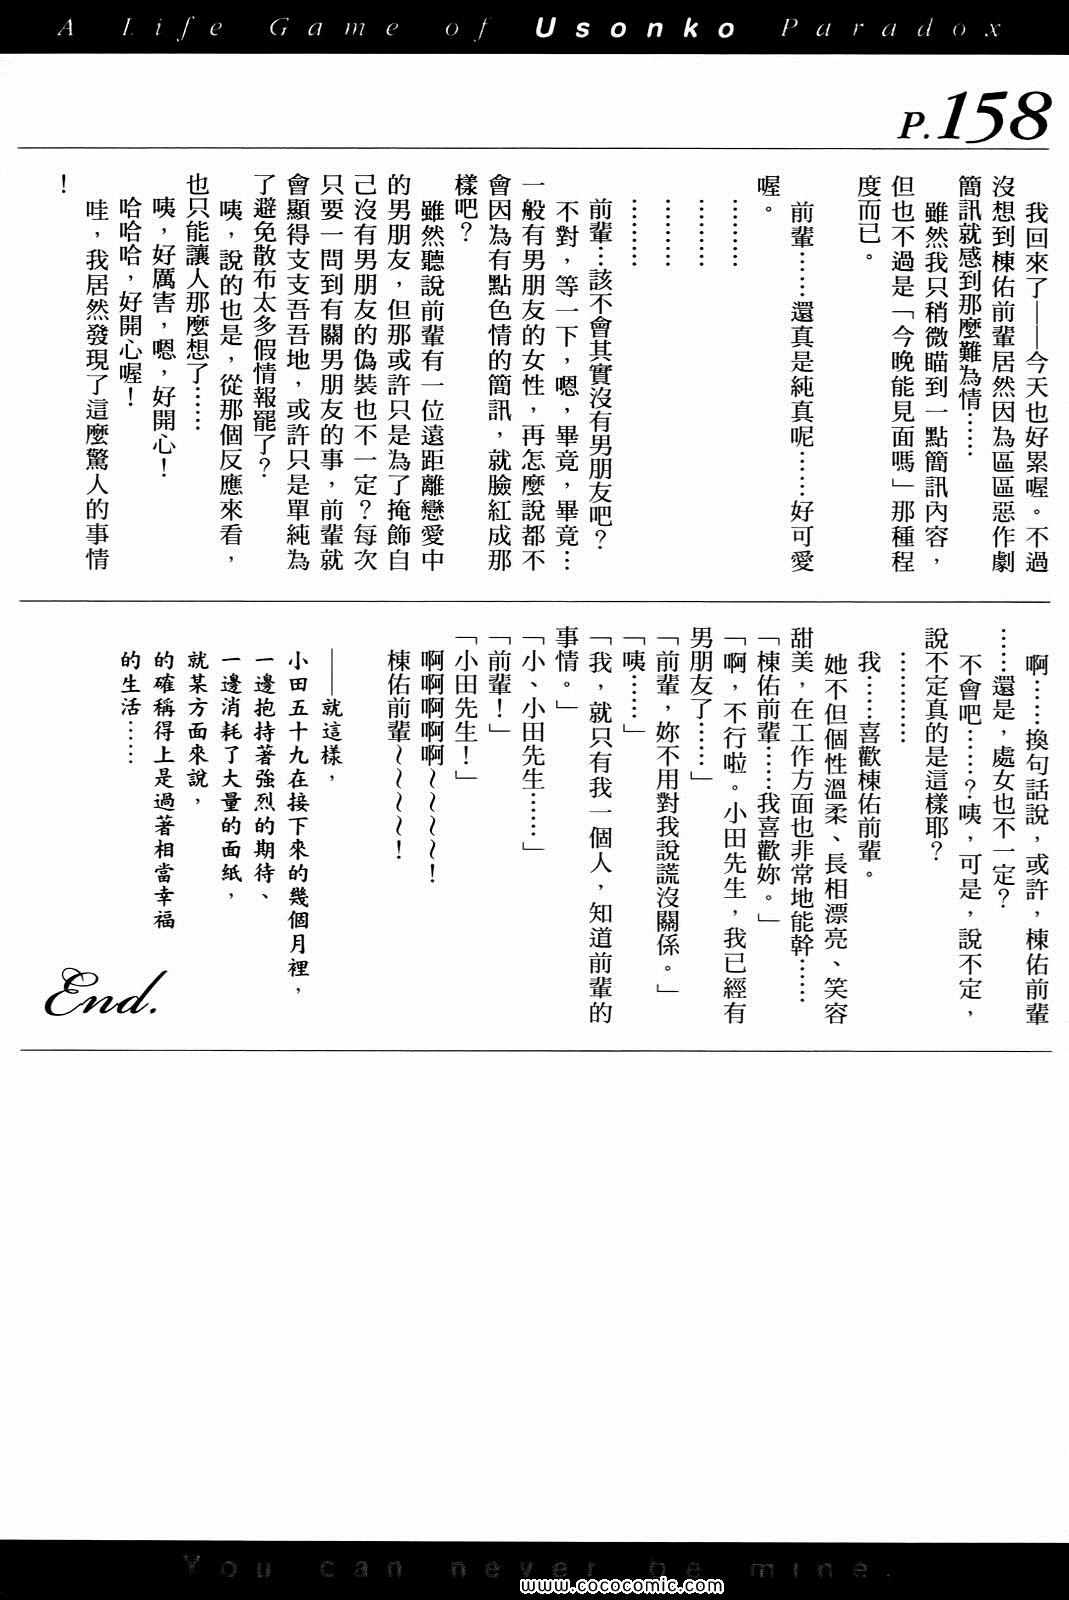 A Life Game of Usonko Paradox
P.158
我回來了——今天也好累喔。不過
沒想到棟佑前輩居然因為區區惡作劇
簡訊就感到那麼難為情……
雖然我只稍微瞄到一點簡訊內容，
但也不過是「今晚能見面嗎」那種程
度而已。
前輩……還真是純真呢……好可愛
喔。
…………
…………
…………
…………
前輩…該不會其實沒有男朋友吧？
不對，等一下，嗯，畢竟，畢竟…
一般有男朋友的女性，再怎麼說都不
會因為有點色情的簡訊，就臉紅成那
樣吧？
雖然聽說前輩有一位遠距離戀愛中
的男朋友，但那或許只是為了掩飾自
己沒有男朋友的偽裝也不一定？每次
只要一問到有關男朋友的事，前輩就
會顯得支支吾吾地，或許只是單純為
了避免散布太多假情報罷了？
咦，說的也是，從那個反應來看，
也只能讓人那麼想了……
咦，好厲害，嗯，好開心！
哈哈哈，好開心喔！
哇，我居然發現了這麼驚人的事情
！
啊……換句話說，或許，棟佑前輩
……還是，處女也不一定？
不會吧……？咦，可是，說不定，
說不定真的是這樣耶？
…………
我……喜歡棟佑前輩。
她不但個性溫柔、長相漂亮、笑容
甜美，在工作方面也非常地能幹……
「棟佑前輩……我喜歡妳。」
「啊，不行啦。小田先生，我已經有
男朋友了……」
「前輩，妳不用對我說謊沒關係。」
「咦……」
「我，就只有我一個人，知道前輩的
事情。」
「小、小田先生……」
「前輩！」
「小田先生！」
啊啊啊啊啊～～～～！
棟佑前輩～～～～～！
——就這樣，
小田五十九在接下來的幾個月裡，
一邊抱持著強烈的期待、
一邊消耗了大量的面紙，
就某方面來說，
的確稱得上是過著相當幸福
的生活……
End.
You can never be mine.
www.cococomic.com